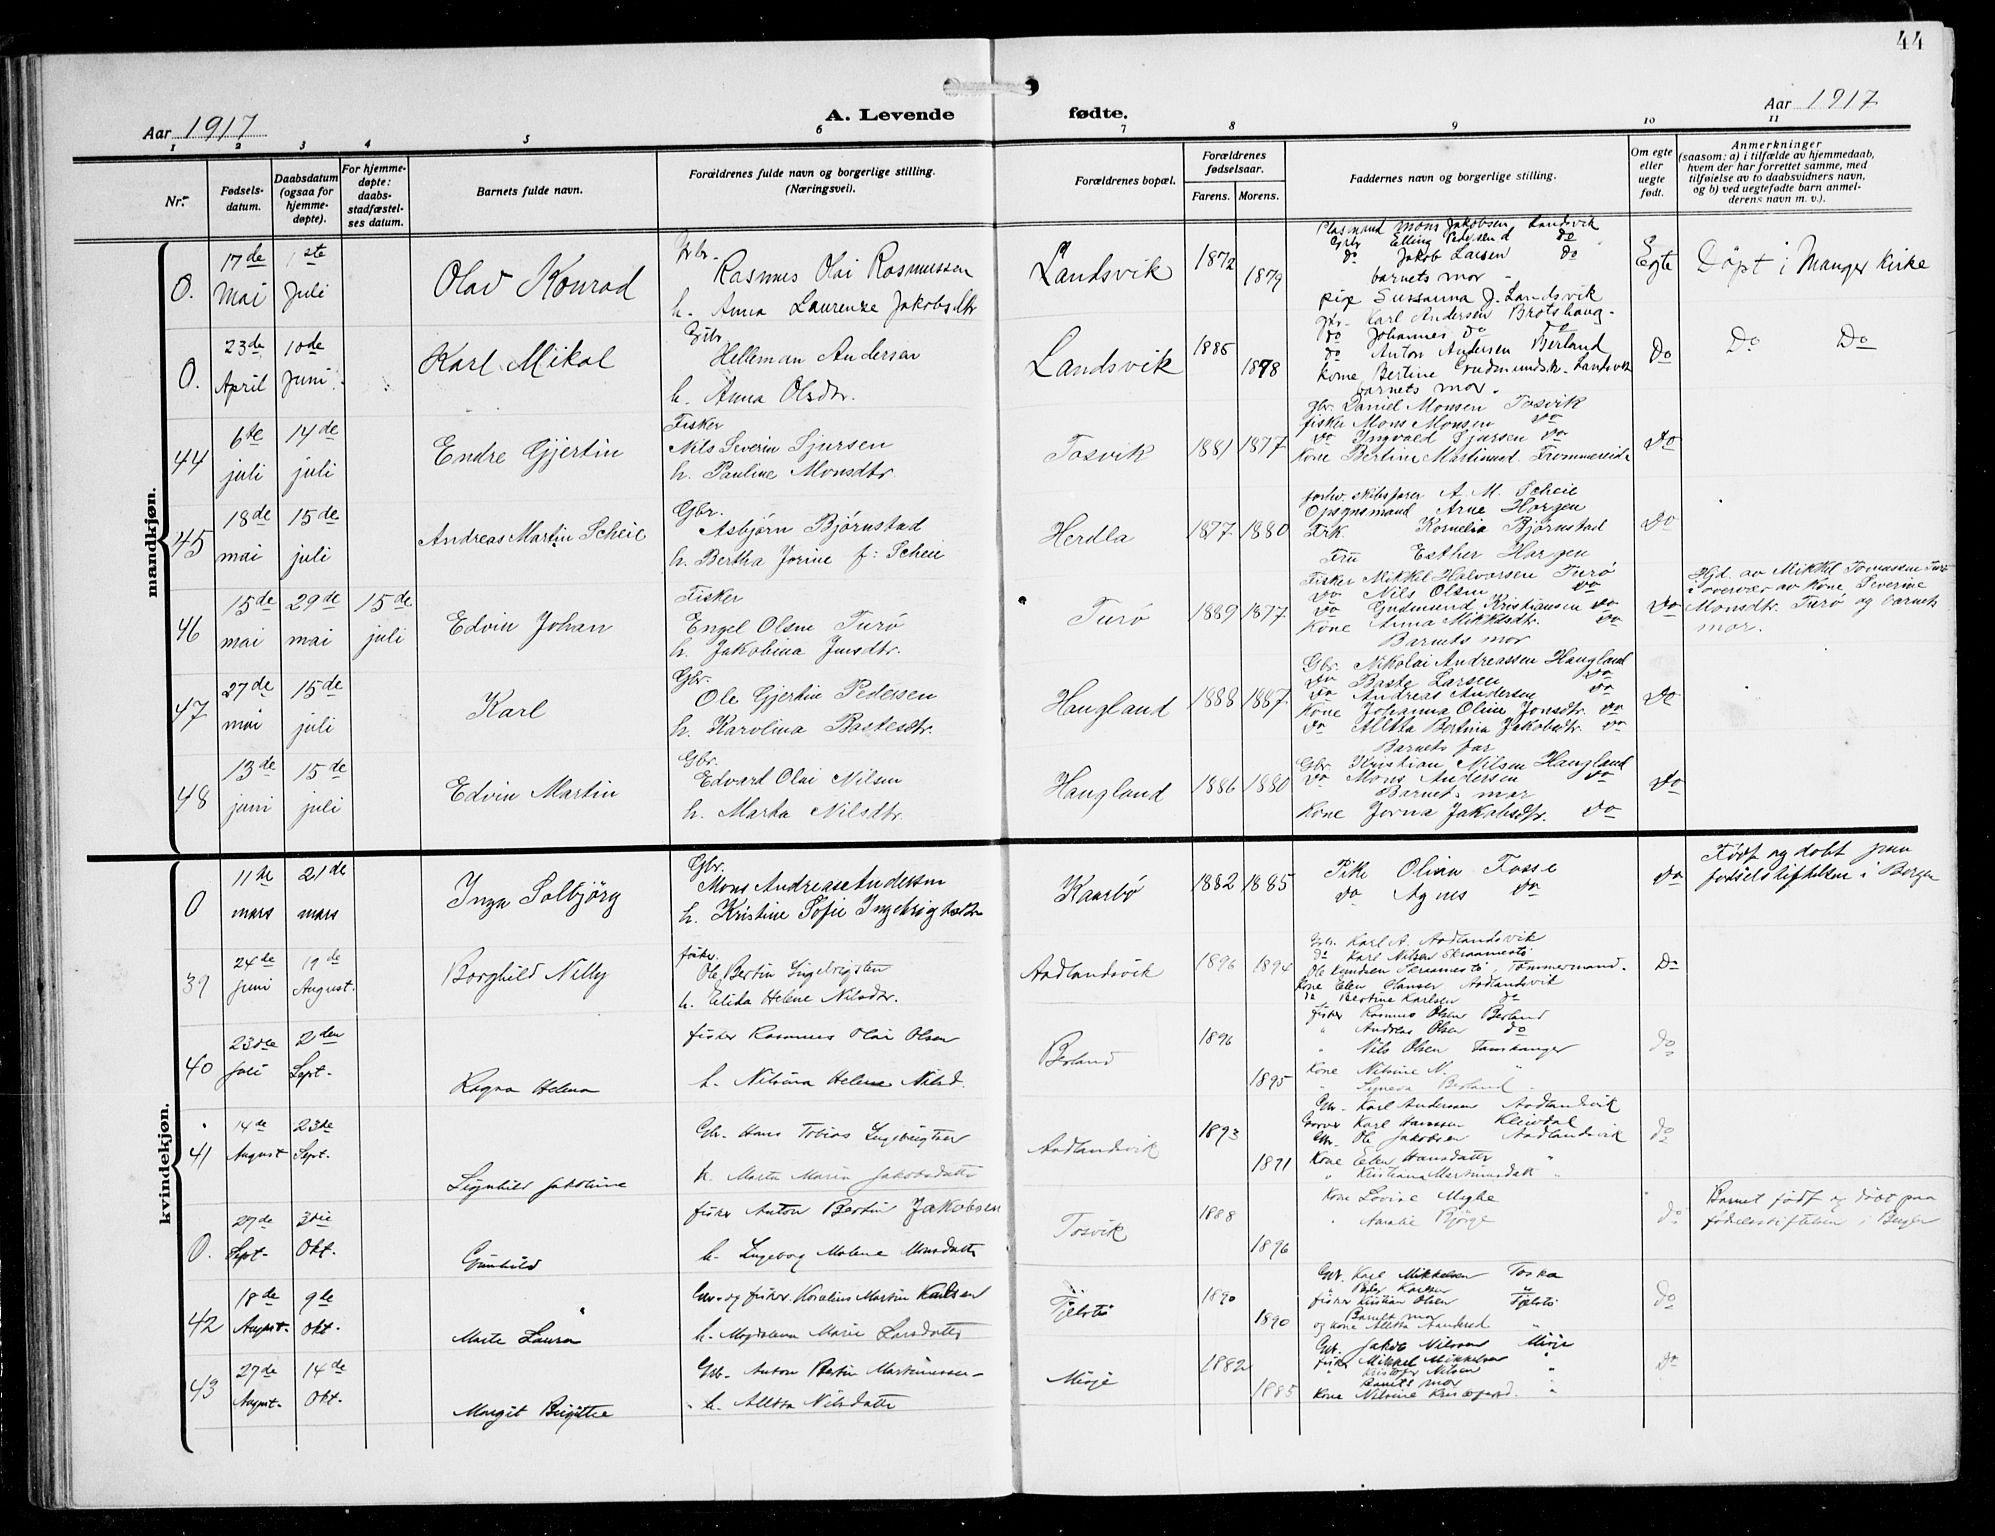 44
Aar 1917
A. Levende fødte.
Aar 1917
1 2 3 4 5 6 7 8 9 10 11
Nr.
Fødsels-
datum.
Daabsdatum
(ogsaa for
hjemme-
døpte).
For hjemme-
døpte:
daabs-
stadfæstel-
ses datum.
Barnets fulde navn.
Forældrenes fulde navn og borgerlige stilling.
(Næringsvei).
Forældrenes bopæl.
Forældrenes
fødselsaar.
Farens. Morens.
Faddernes navn og borgerlige stilling.
Om egte
eller
uegte
født.
Anmerkninger
(saasom: a) i tilfælde av hjemmedaab,
hvem der har forrettet samme, med
tilføielse av to daabsvidners navn,
og b) ved uegtefødte barn anmel-
derens navn m. v.).
mandkjøn.
0. 17de Mai 1ste Juli
Olav Konrad
Gbr.
Rasmus Olai Rasmussen
h. Anna Laurenze Jakobsdtr
Landsvik
1872 1879
Mons Jakobsen Landsvik
Gbr Elling Pedersen do
do Jakob Larsen do
barnets mor
pige Sussanna J. Landsvik
Egte
Döpt i Manger kirke
0. 23de April 10de Juni
Karl Mikal
Gbr
Helleman Andersen
h. Anna Olsdtr.
Landsvik
1885 1878
gbr. Karl Andersen Brotshaug
do Johannes do do
do Anton Andersen Berland
kone Bertine Gudmundsd. Landsvik
barnets mor.
Do
Do Do
44 6te juli 14de juli
Endre Gjertin
Fisker
Nils Severin Sjursen
h. Pauline Monsdtr.
Tosvik
1881 1877
Gbr. Daniel Monsen Tosvik
fisker Mons Monsen do
do Ingvald Sjursen do
Kone Bertine Martinusd. Frommereide
do
45 18de mai 15de juli
Andreas Martin Scheie
Gbr.
Asbjørn Bjørnstad
h. Bertha Jorine f: Scheie
Herdla
1877 1880
forhv. skibsfører A. M. Scheie
Opsynsmand Arne Horgen
Frk. Kornelia Bjørnstad
Fru Esther Horgen
do
46 15de mai 29de mai 15de juli
Edvin Johan
Fisker
Engel Olsen Turö
h. Jakobina Jonsdtr.
Turö
1889 1877
Fisker Mikkel Halvorsen Turö
do Nils Olsen do
do Gudmund Kristiansen do
Kone Anna Mikkelsdtr. do
Barnets mor
do
Hjd. av Mikkel Tomassen Turö
i overvær av kone Severine
Monsdtr. Turö og barnets
mor.
47 27de mai 15de juli
Karl
Gbr.
Ole Gjertin Pedersen
h. Karolina Bastesdtr.
Haugland
1888 1887
Gbr. Nikolai Andreassen Haugland
do Baste Larsen do
do Andreas Andersen do
Kone Johanna Oline Jonsdtr. do
do Alette Bertina Jakobsdtr. do
Barnets far
do
48 13de juni 15de juli
Edvin Martin
Gbr.
Edvard Olai Nilsen
h. Marta Nilsdtr.
Haugland
1886 1880
Gbr. Kristian Nilsen Haugland
do Mons Andersen do
Barnets mor
Kone Jorna Jakobsdtr. do
do
kvindekjøn.
0 11te mars 21de mars
Inga Solbjörg
Gbr.
Mons Andreas Andersen
h. Kristine Sofie Ingebrigtsdtr
Kaarbö
1882 1885
Pike Olivia Fosse
do Agnes do
do
Født og dobt paa
fødselsstiftelsen i Bergen
39 24de Juni 19de August.
Borghild Nelly
fisker
Ole Bertin Ingebrigtsen
h. Elida Helene Nilsdtr.
Aadlandsvik
1896 1894
Gbr. Karl A. Aadlandsvik
do Karl Nilsen Skraamestö
Ole Knudsen Skraamestö, Tömmermand.
Kone Elen Hansen Aadlandsvik
do Bertine Karlsen do
Do
40 23de Juli 2den Sept.
Ragna Helena
fisker Rasmus Olai Olsen
h. Nilsina Helene Nilsd.
Berland
1896 1895
fisker Rasmus Olsen Berland
" Andreas Olsen do
" Nils Olsen Tamskanger
Kone Nilsine N. "
" Syneva Berland
do
41 14de August 23de Sept.
Signhild Jakobine
Gbr. Hans Tobias Ingebrigtsen
h. Marta Marie Jakobsdatter
Aadlandsvik
1893 1891
Gbr. Karl Andersen Aadlandsvik
Karl Hanssen Kleivdal
Gbr. Ole Jakobsen Aadlandsvik
Kone Elen Hansdatter "
" Kristiana Martinusdatt "
do
0. 27de Sept. 3die Okt.
Gunhild
fisker Anton Bertin Jakobsen
h. Ingeborg Malene Monsdatter
Tosvik
1888 1896
Kone Lovise Mighe
" Amalie Bjørge
do
Barnet født og døbt paa
fødselsstiftelsen i Bergen
42 18de August. 9de Okt.
Marte Laura
Gbr. og fisker Kornelius Martin Karlsen
h. Magdalena Marie Larsdatter
Tjelstö
1890 1890
Gbr. Karl Mikkelsen Toska
" Karlsen "
fisker Kristian Olsen Tjelstö
Barnets mor
og kone Aletta Andersd "
do
43 27de August. 14de Okt.
Margit Birgitte
Gbr. Anton Bertin Martinussen
h. Aletta Nilsdatter
Misje
1882 1885
Gbr. Jakob Nilssen Misje
fisker Mikkel Mikkelsen "
" Kristoffer Nilsen "
Barnets mor
Kone Nilsine Kristoffersd. "
Do